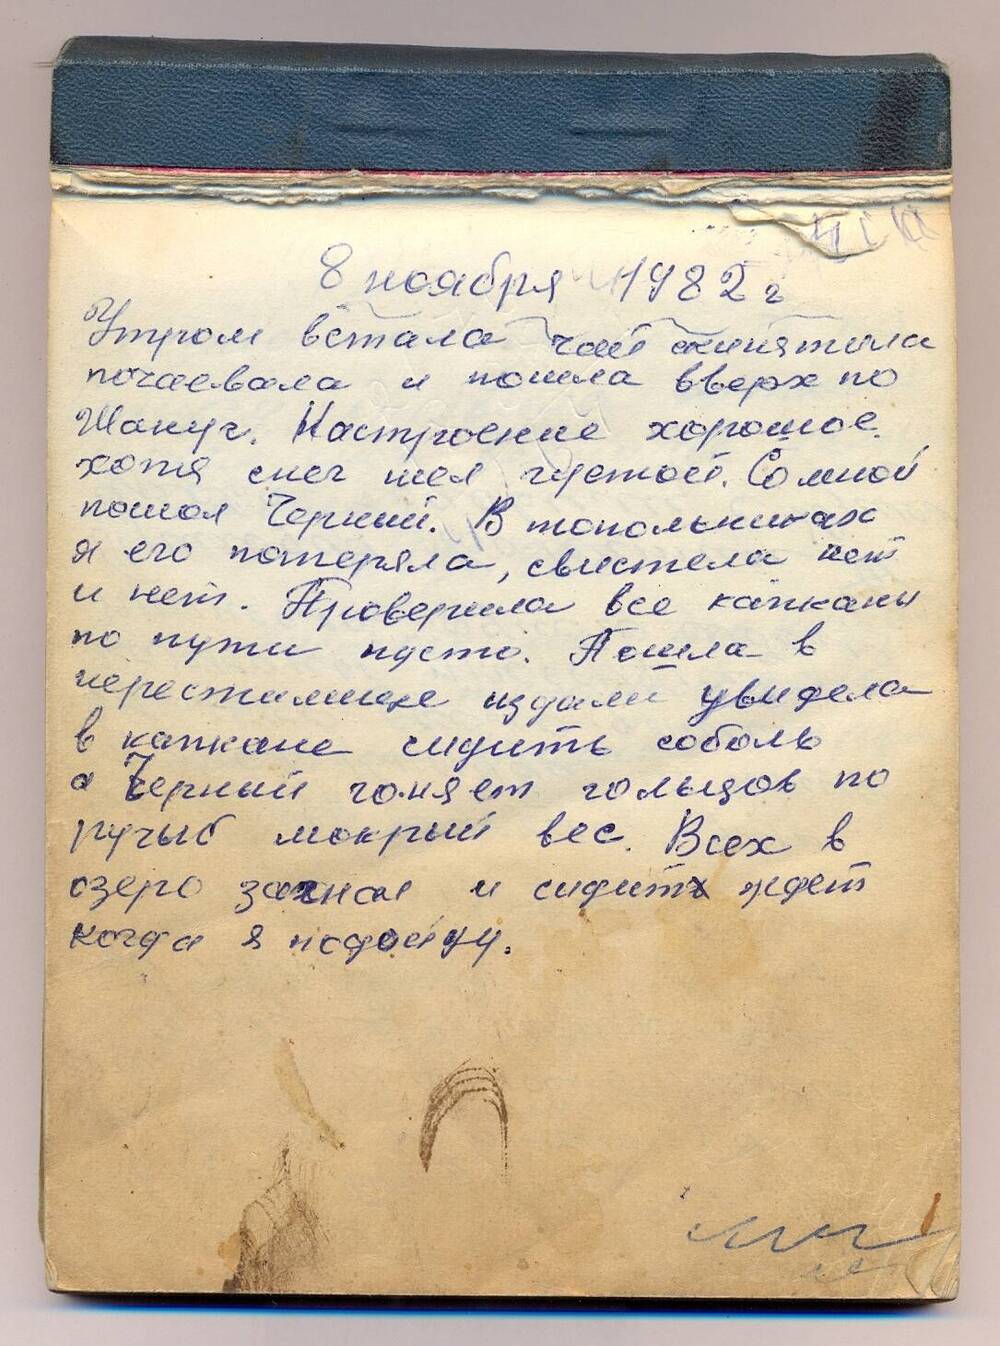 8 ноября 1982 г
Утром встала чай скипятила
почаевала и пошла вверх по
Шануч. Настроение хорошое
хотя снег шел густой. Со мной
пошол Черний. В топольниках
я его потеряла, свистела нет
и нет. Проверила все капканы
по пути пусто. Пошла в
нерестилище издали увидела
в капкане сидить соболь
а Черный гоняет гольцов по
ручью мокрый вес. Всех в
озеро загнал и сидит ждет
когда я подойду.